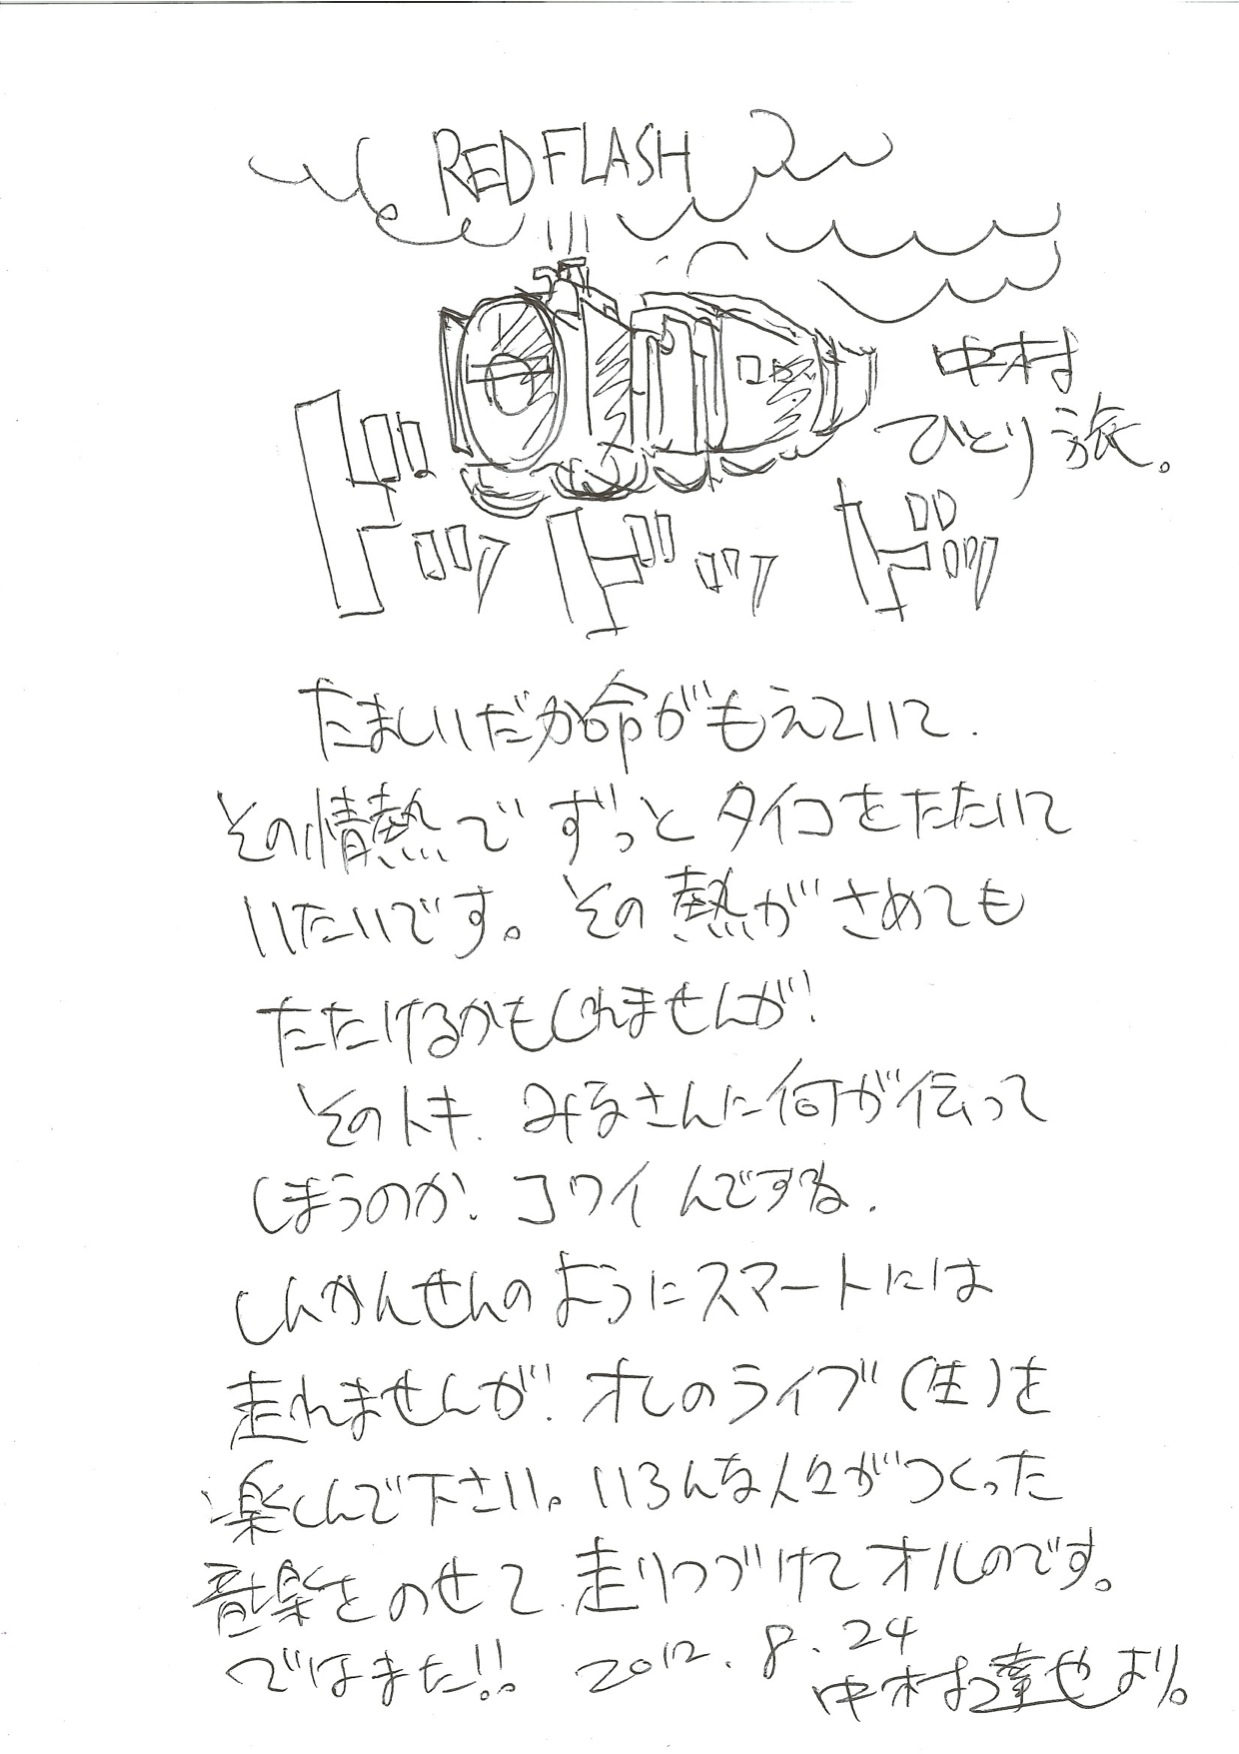 RED FLASH
中村
ひとり旅。
ドドッ ドドッ ドドッ
たましいだか命がもえていて.
その情熱で ずっと タイコをたたいて
いたいです。その熱がさめても
たたけるかもしれませんが!
そのトキ. みなさんに何が伝って
しまうのか! コワイんですね.
しんかんせんのようにスマートには
走れませんが! オレのライブ(生)を
楽しんで下さい。いろんな人々がつくった
音楽をのせて 走りつづけてオルのです。
ではまた!! 2012.8.24
中村達也より。